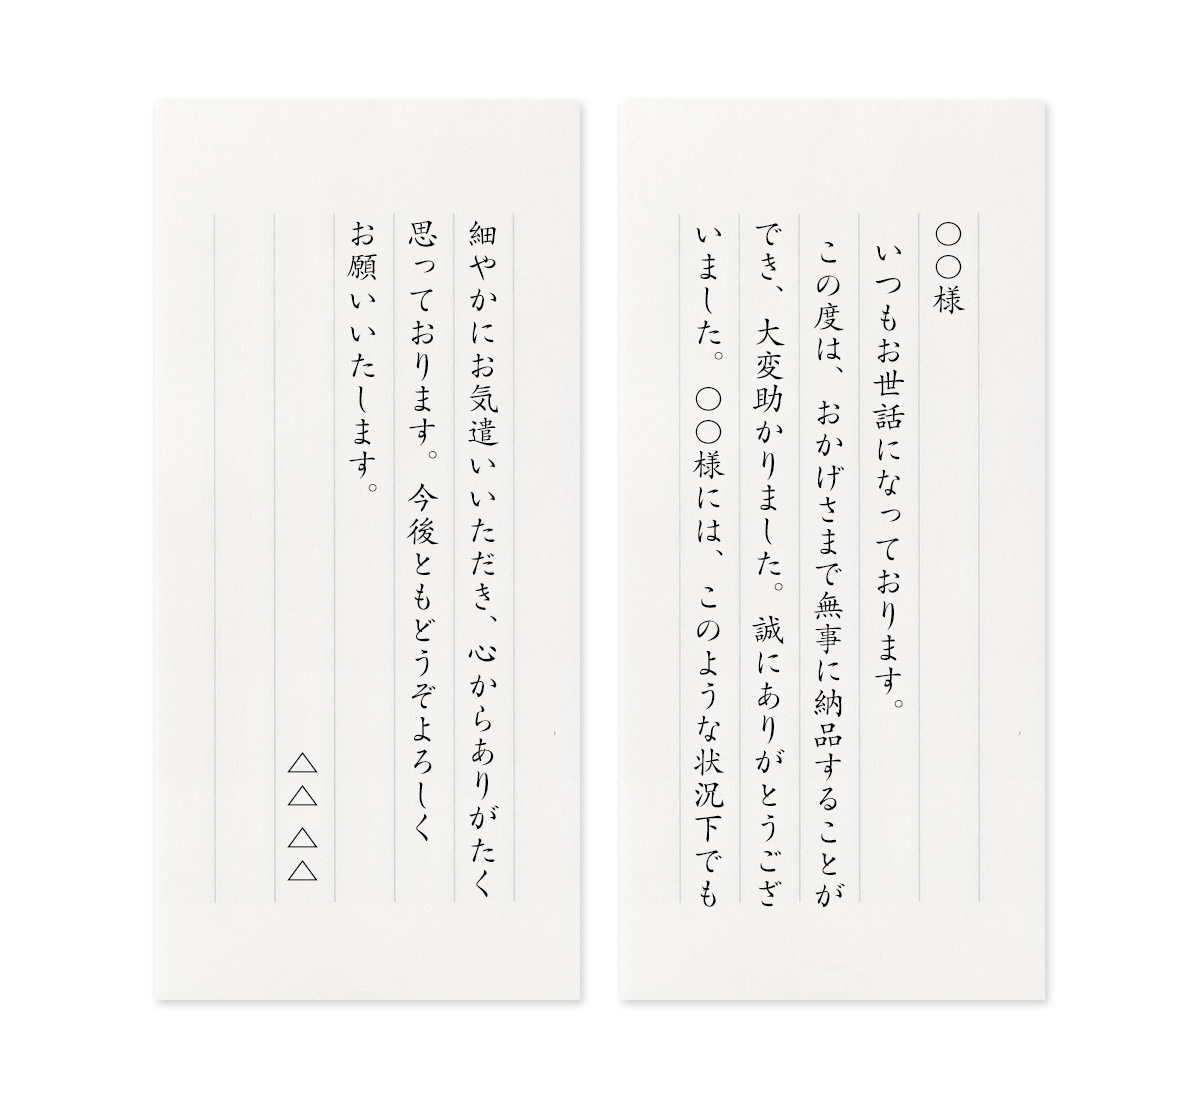 〇〇様
いつもお世話になっております。
この度は、おかげさまで無事に納品することが
でき、大変助かりました。誠にありがとうござ
いました。〇〇様には、このような状況下でも
細やかにお気遣いいただき、心からありがたく
思っております。今後ともどうぞよろしく
お願いいたします。
△△ △△